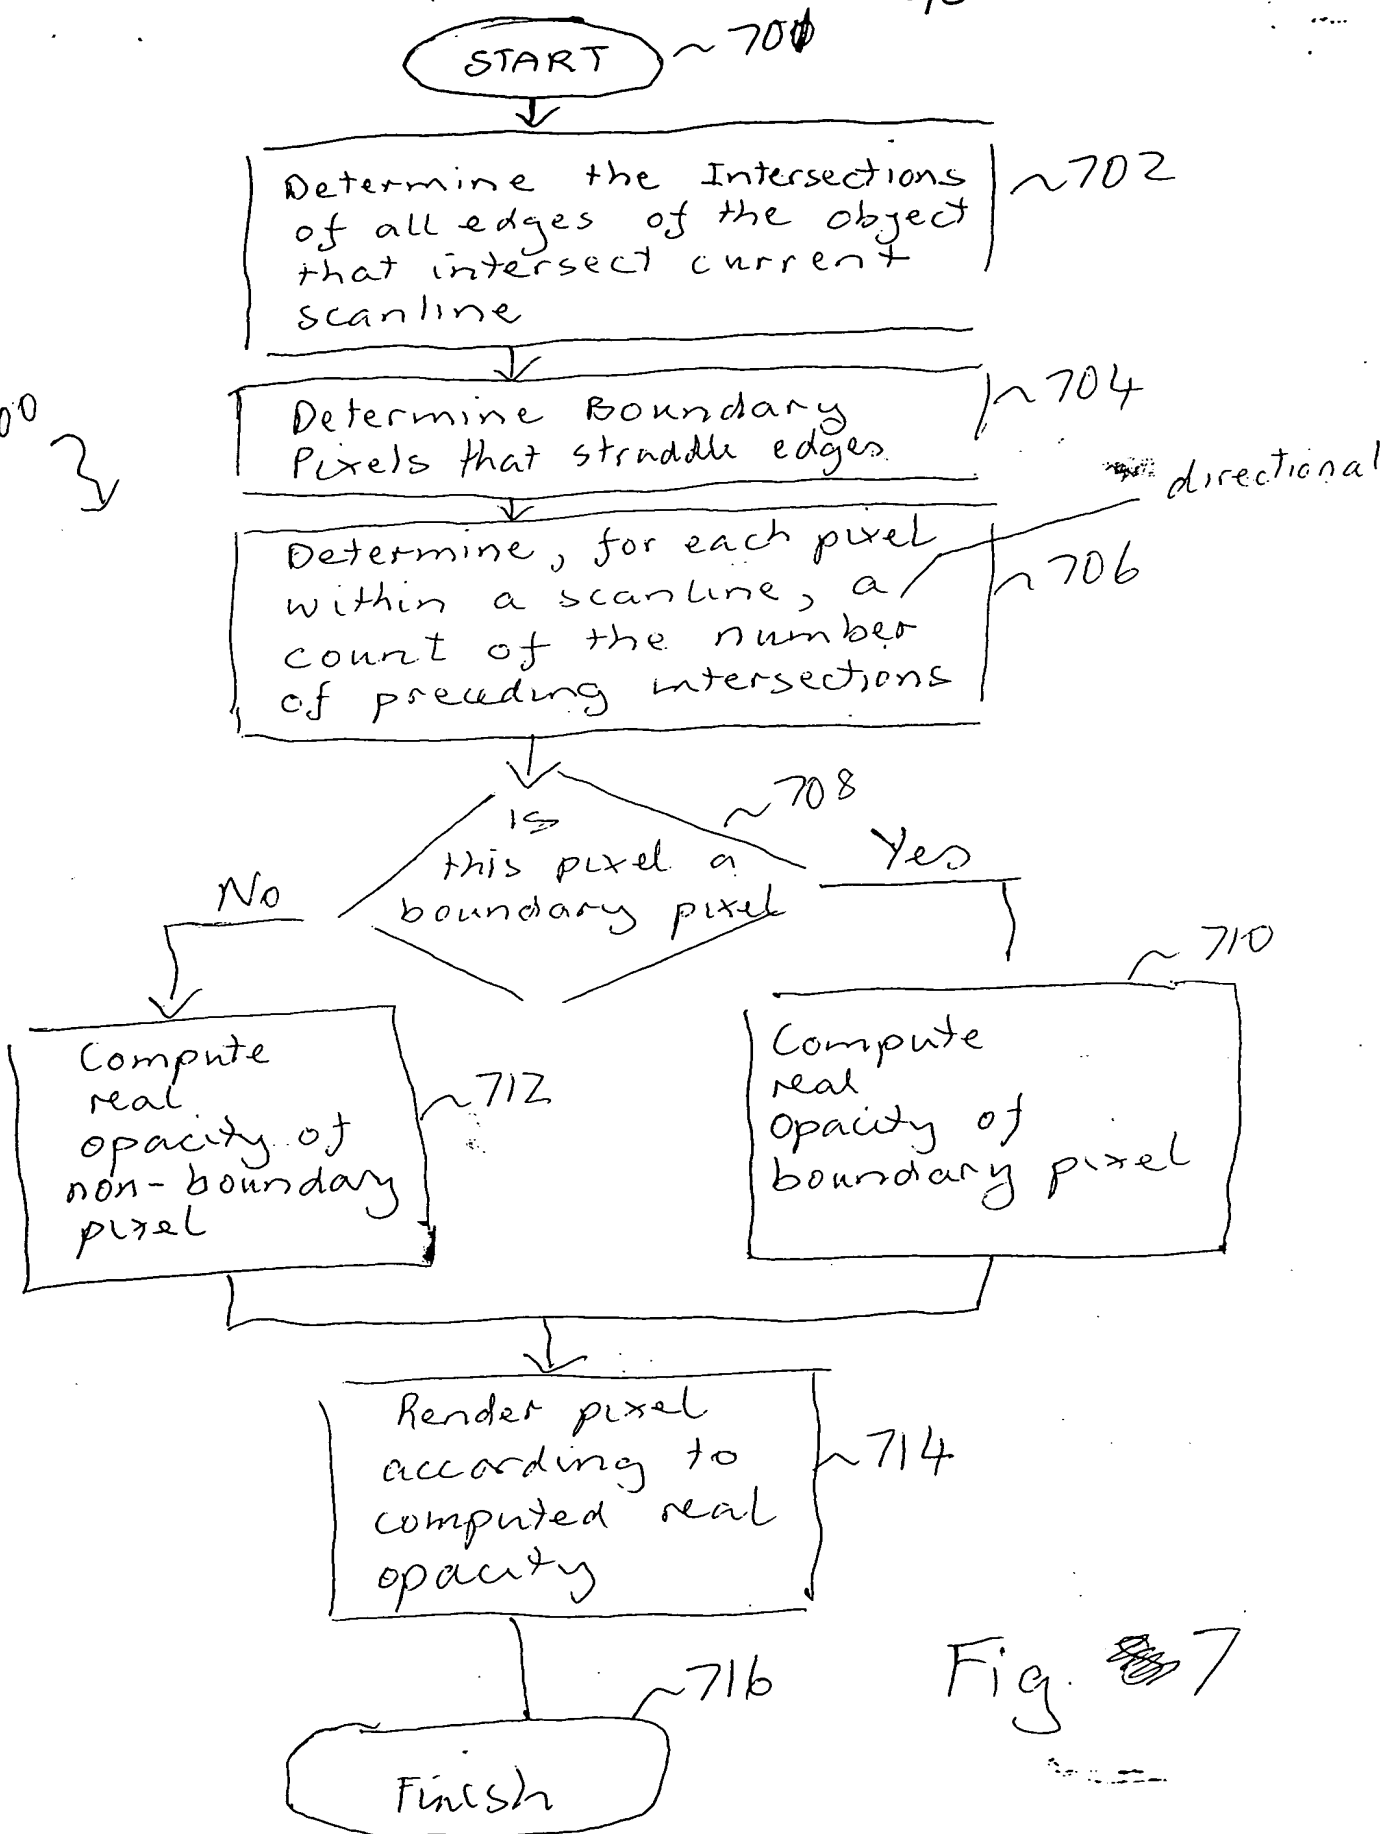 START
701
Determine the Intersections
of all edges of the object
that intersect current
scanline
702
00
Determine Boundary
Pixels that straddle edges
704
directional
Determine, for each pixel
within a scanline, a
count of the number
of preceding intersections
706
Is
this pixel a
boundary pixel
708
No
Yes
710
Compute
real
opacity of
non-boundary
pixel
712
Compute
real
opacity of
boundary pixel
Render pixel
according to
computed real
opacity
714
716
Finish
Fig. 7